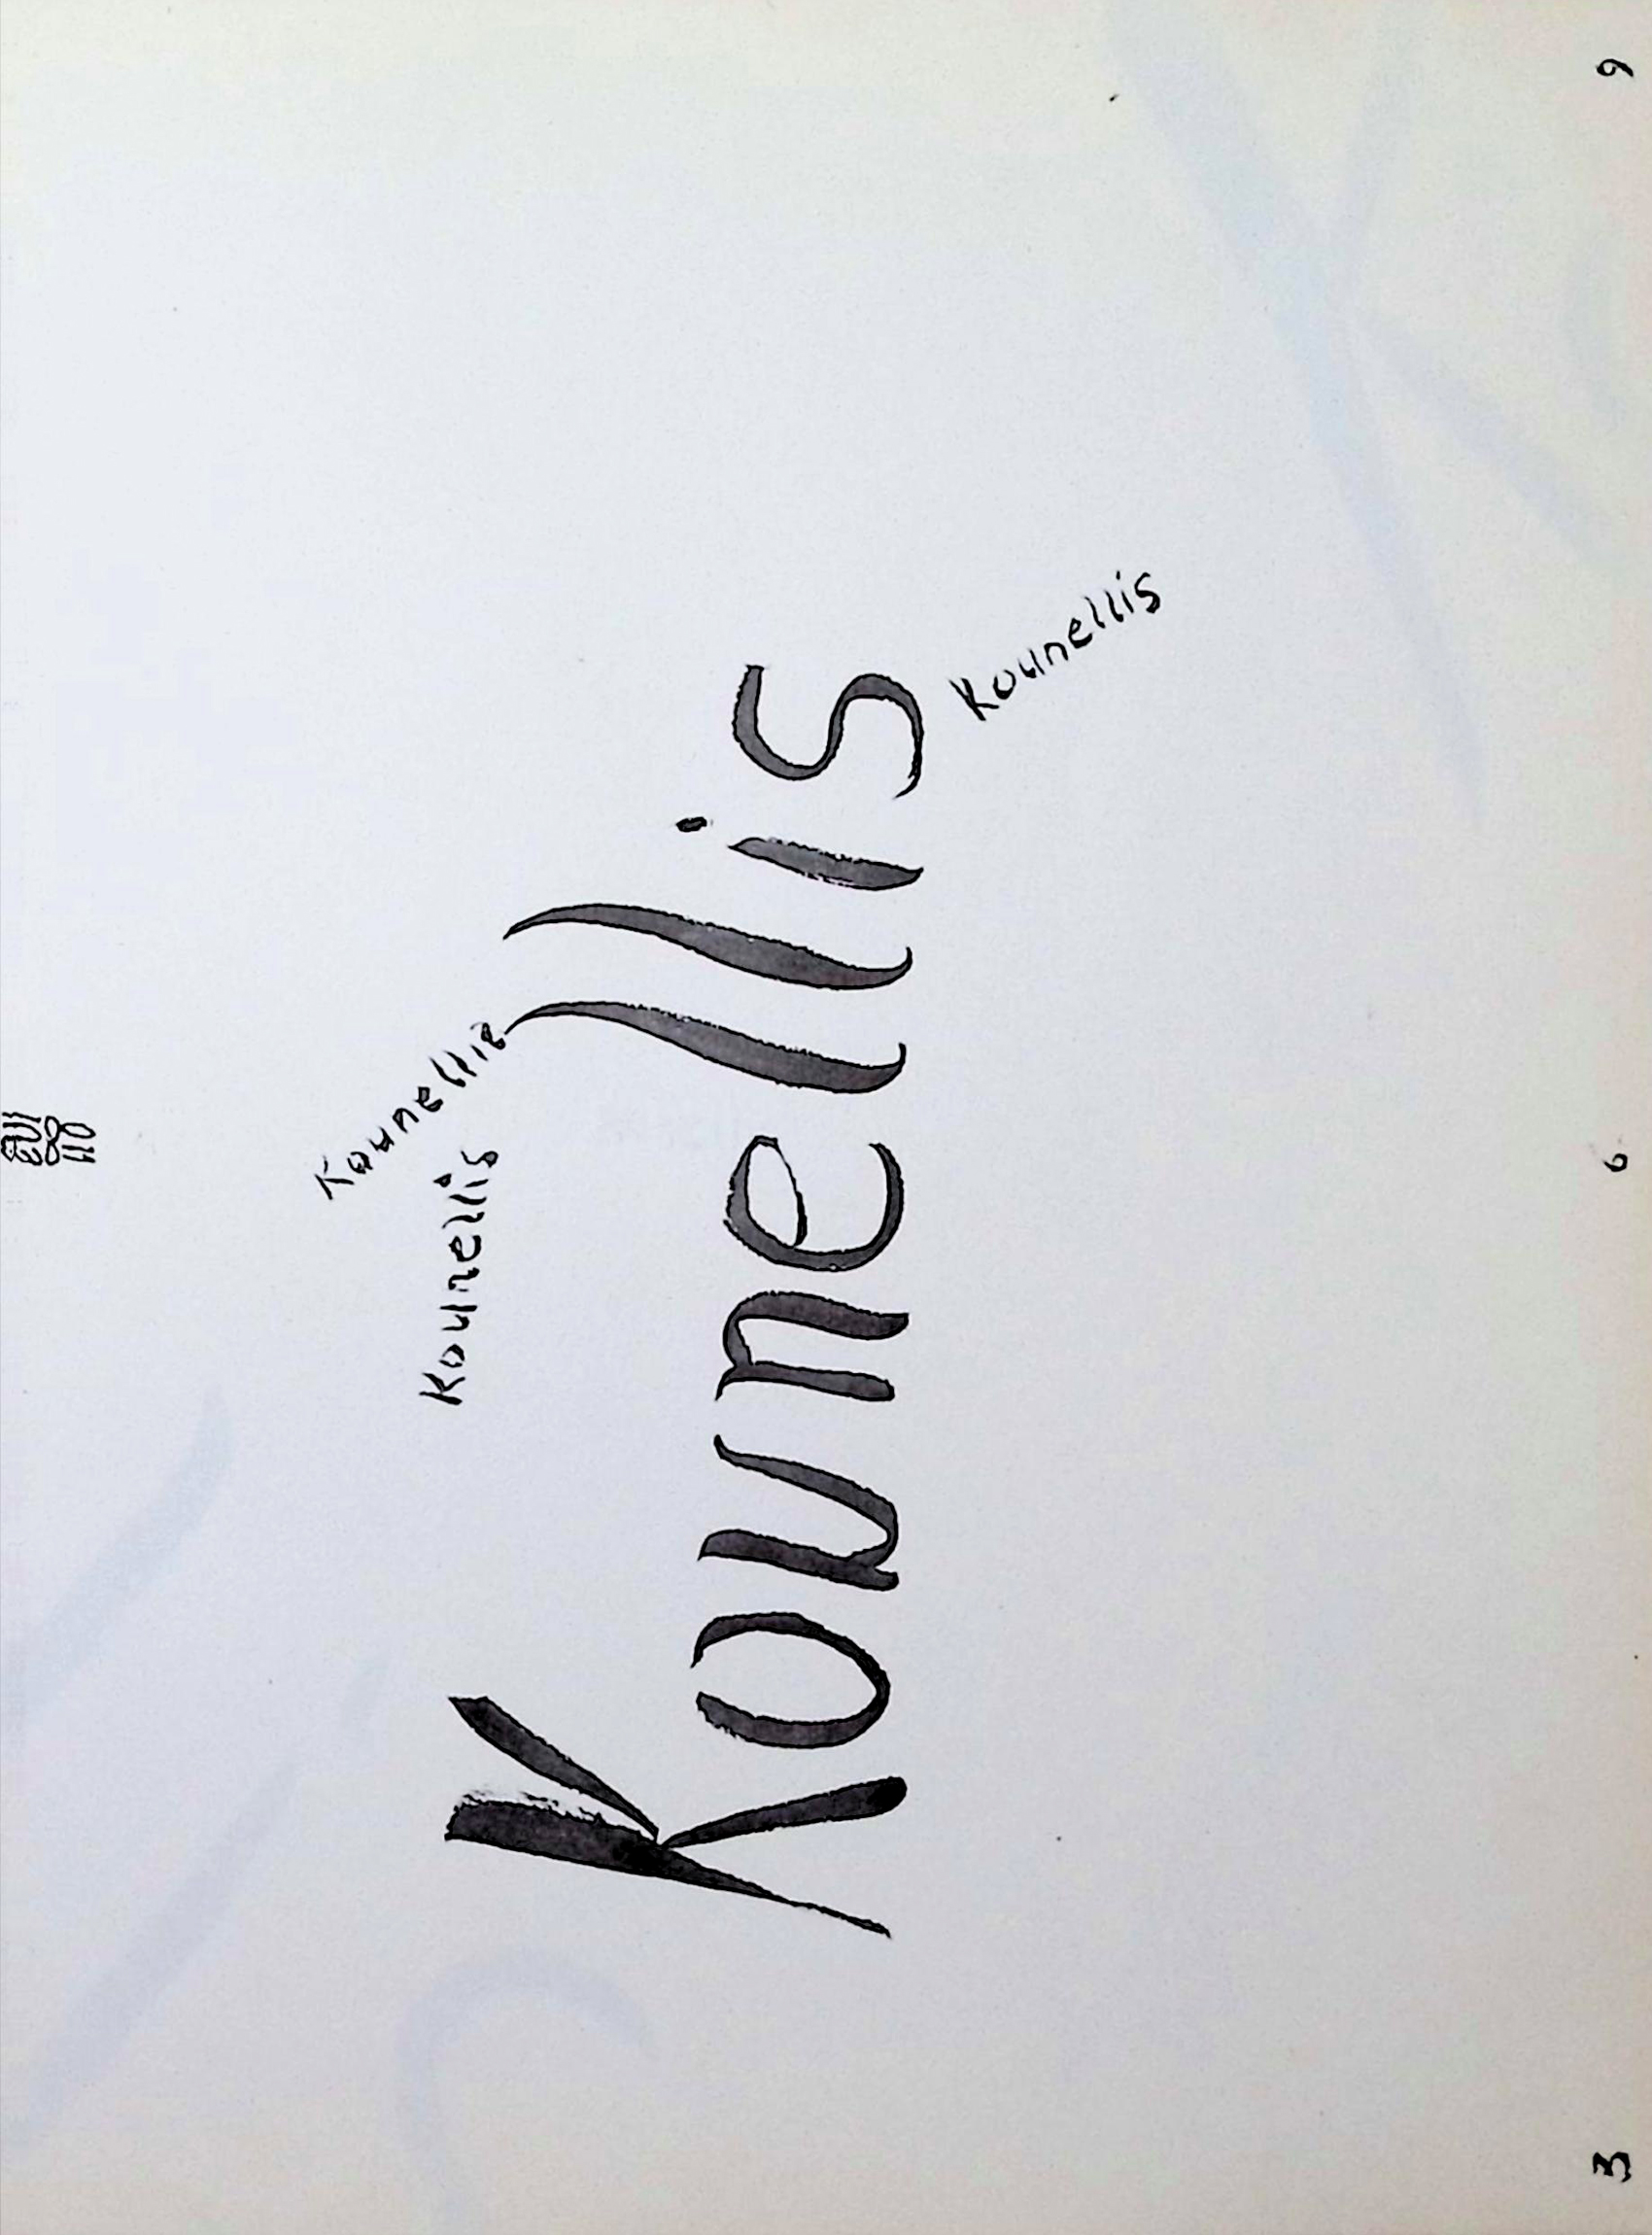 Kounellis
Kounellis
Kounellis
Kounellis
3 6 9